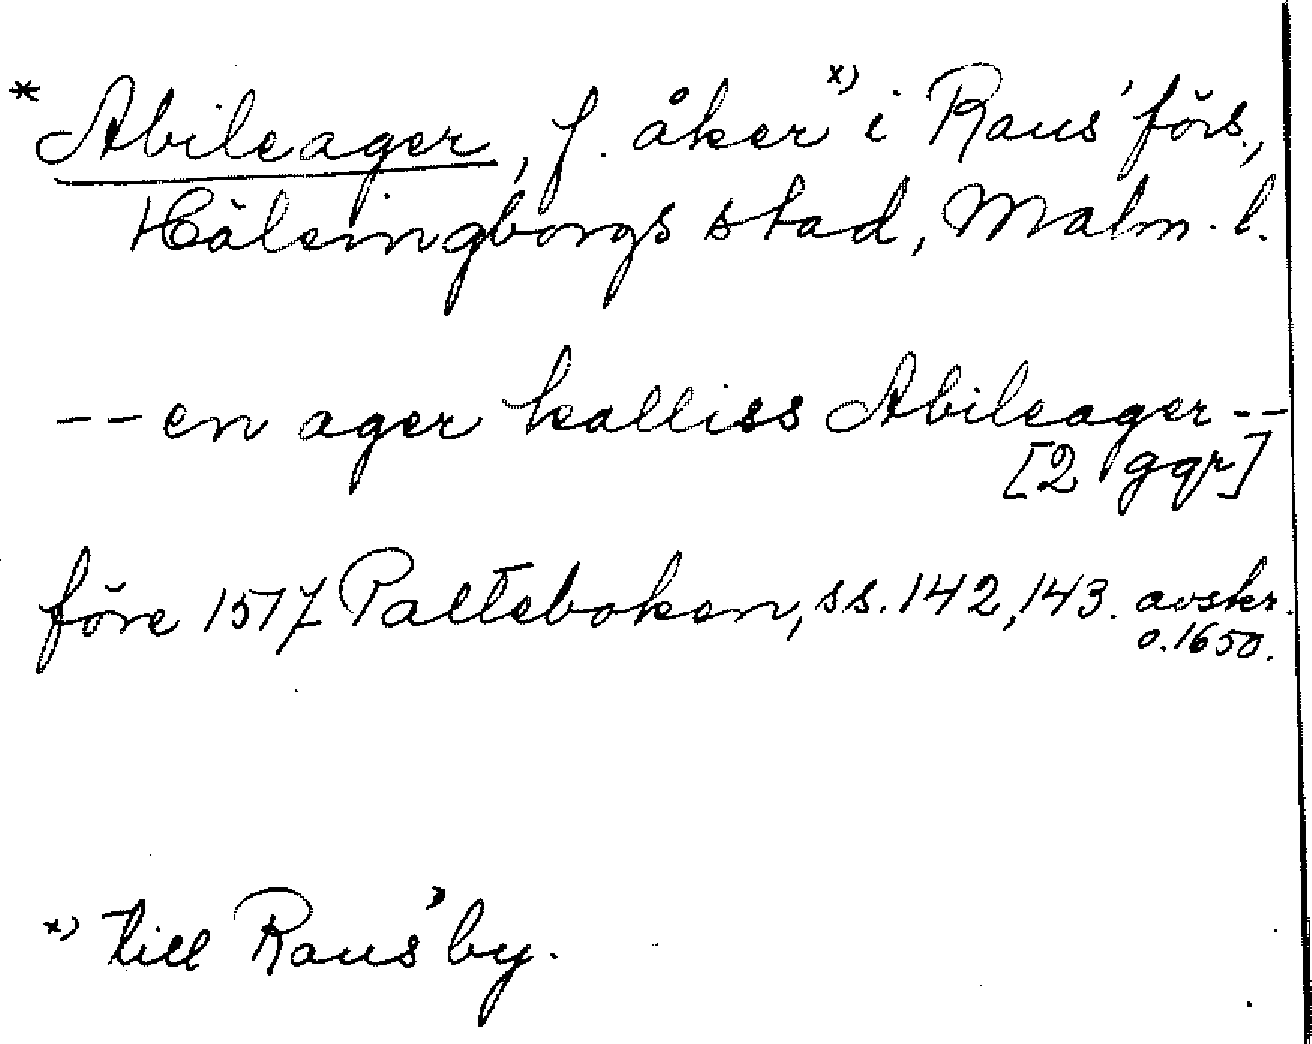 * Abileager, f. åker x) i Raus' förs.,
Hälsingborgs stad, Malm. l.
-- en ager kalliss Abileager --
[2 ggr]
före 1517 Palteboken, ss. 142, 143. avskr.
o. 1650.
x) till Raus' by.